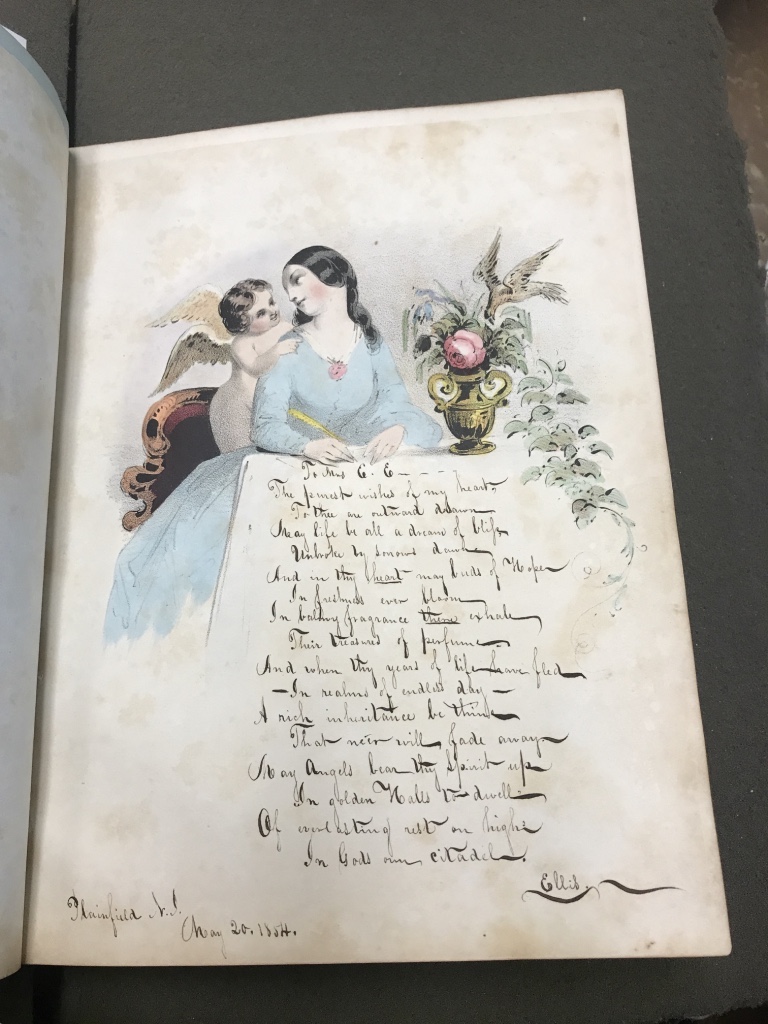 To Mrs E. E
The purest wishes of my heart,
To thee are outward drawn
May life be all a dream of bliss
Unbroke by sorrows dawn
And in thy heart may buds of Hope
In freshness ever bloom
In balmy fragrance there exhale
Their treasures of perfume
And when thy years of life have fled
—In realms of endless day—
A rich inheritance be thine
That ne'er will fade away
May Angels bear thy spirit up
In golden Halls to dwell
Of everlasting rest on high
In Gods own citadel.
Ellis.
Plainfield N.J.
May 20. 1854.